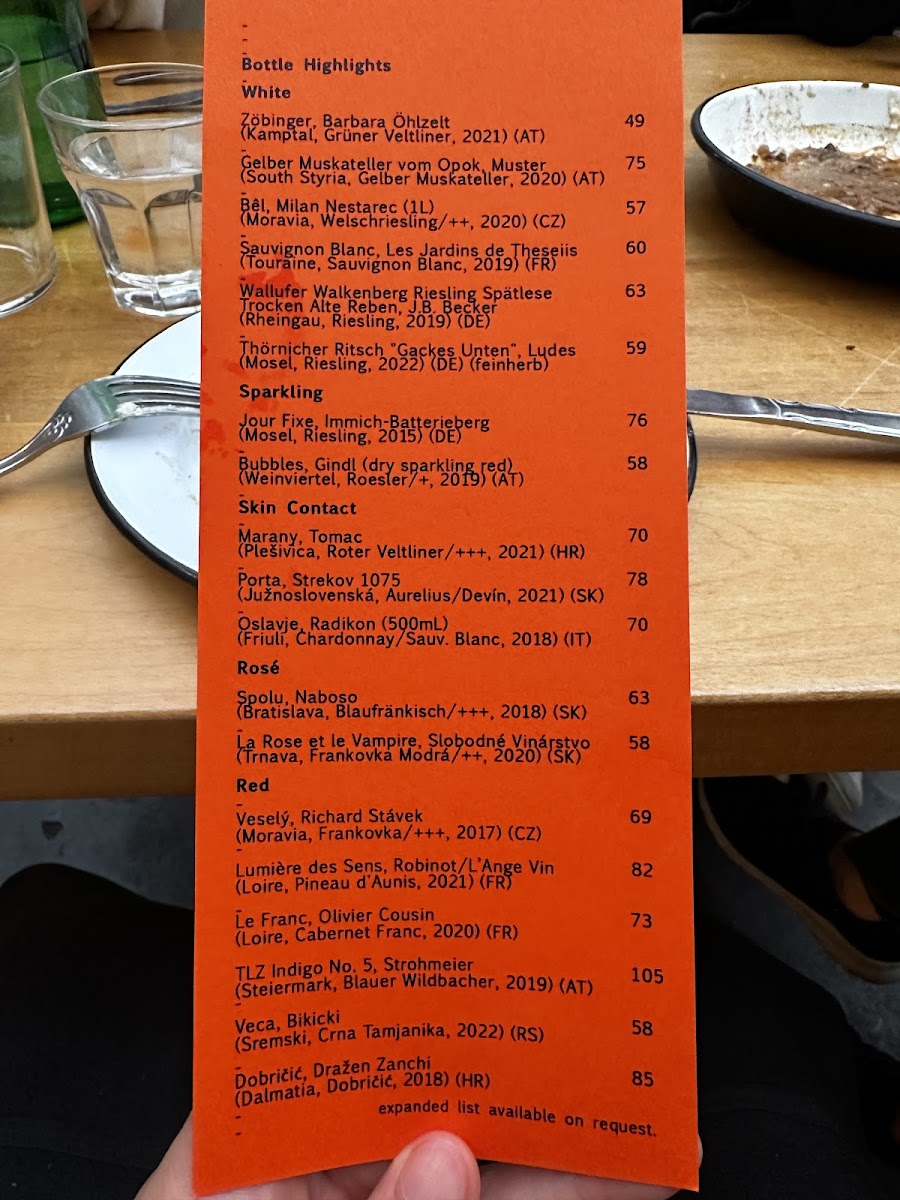 -
-
-
Bottle Highlights
-
White
-
Zöbinger, Barbara Öhlzelt 49
(Kamptal, Grüner Veltliner, 2021) (AT)
-
Gelber Muskateller vom Opok, Muster 75
(South Styria, Gelber Muskateller, 2020) (AT)
-
Běl, Milan Nestarec (1L) 57
(Moravia, Welschriesling/++, 2020) (CZ)
-
Sauvignon Blanc, Les Jardins de Theseiis 60
(Touraine, Sauvignon Blanc, 2019) (FR)
-
Wallufer Walkenberg Riesling Spätlese 63
Trocken Alte Reben, J.B. Becker
(Rheingau, Riesling, 2019) (DE)
-
Thörnicher Ritsch "Gackes Unten", Ludes 59
(Mosel, Riesling, 2022) (DE) (feinherb)
-
Sparkling
-
Jour Fixe, Immich-Batterieberg 76
(Mosel, Riesling, 2015) (DE)
-
Bubbles, Gindl (dry sparkling red) 58
(Weinviertel, Roesler/+, 2019) (AT)
-
Skin Contact
-
Marany, Tomac 70
(Plešivica, Roter Veltliner/+++, 2021) (HR)
-
Porta, Strekov 1075 78
(Južnoslovenská, Aurelius/Devín, 2021) (SK)
-
Oslavje, Radikon (500mL) 70
(Friuli, Chardonnay/Sauv. Blanc, 2018) (IT)
-
Rosé
-
Spolu, Naboso 63
(Bratislava, Blaufränkisch/+++, 2018) (SK)
-
La Rose et le Vampire, Slobodné Vinárstvo 58
(Trnava, Frankovka Modrá/++, 2020) (SK)
-
Red
-
Veselý, Richard Stávek 69
(Moravia, Frankovka/+++, 2017) (CZ)
-
Lumière des Sens, Robinot/L'Ange Vin 82
(Loire, Pineau d'Aunis, 2021) (FR)
-
Le Franc, Olivier Cousin 73
(Loire, Cabernet Franc, 2020) (FR)
-
TLZ Indigo No. 5, Strohmeier 105
(Steiermark, Blauer Wildbacher, 2019) (AT)
-
Veca, Bikicki 58
(Sremski, Crna Tamjanika, 2022) (RS)
-
Dobričić, Dražen Zanchi 85
(Dalmatia, Dobričić, 2018) (HR)
-
expanded list available on request.
-